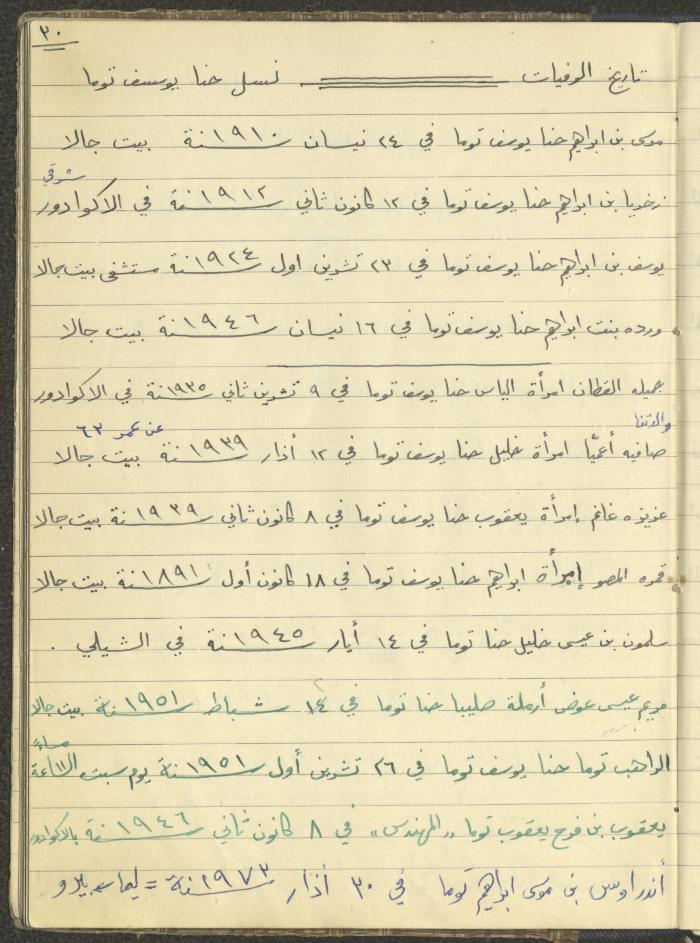 ٣٠
تاريخ الوفيات نسل حنا يوسف توما
موسى بن ابراهيم حنا يوسف توما في ٢٤ نيسان سنة ١٩١٠ بيت جالا
شرقي
زخريا بن ابراهيم حنا يوسف توما في ١٢ كانون ثاني سنة ١٩١٢ في الاكوادور
يوسف بن ابراهيم حنا يوسف توما في ٢٣ تشرين اول سنة ١٩٢٤ مستشفى بيت جالا
ورده بنت ابراهيم حنا يوسف توما في ١٦ نيسان سنة ١٩٤٦ بيت جالا
جميله القطان امرأة الياس حنا يوسف توما في ٩ تشرين ثاني سنة ١٩٣٥ في الاكوادور
والدتنا عن عمر ٦٣
صافيه أعميّا امرأة خليل حنا يوسف توما في ١٢ أذار سنة ١٩٣٩ بيت جالا
عزيزه غانم إمرأة يعقوب حنا يوسف توما في ٨ كانون ثاني سنة ١٩٣٩ بيت جالا
قمره المصو إمرأة ابراهيم حنا يوسف توما في ١٨ كانون أول سنة ١٨٩١ بيت جالا
سلمون بن عيسى خليل حنا توما في ١٤ أيار سنة ١٩٤٥ في الشيلي .
مريم عيسى عوض أرملة صليبا حنا توما في ١٤ شباط سنة ١٩٥١ بيت جالا
مساءً
الراهب توما حنا يوسف توما في ٢٦ تشرين أول سنة ١٩٥١ يوم سبت الساعة
يعقوب بن فرح يعقوب توما "المهندس" في ٨ كانون ثاني سنة ١٩٤٦ بالاكوادور
أندراوس بن موسى ابراهيم توما في ٣٠ أذار سنة ١٩٧٣ = ليما بيرو